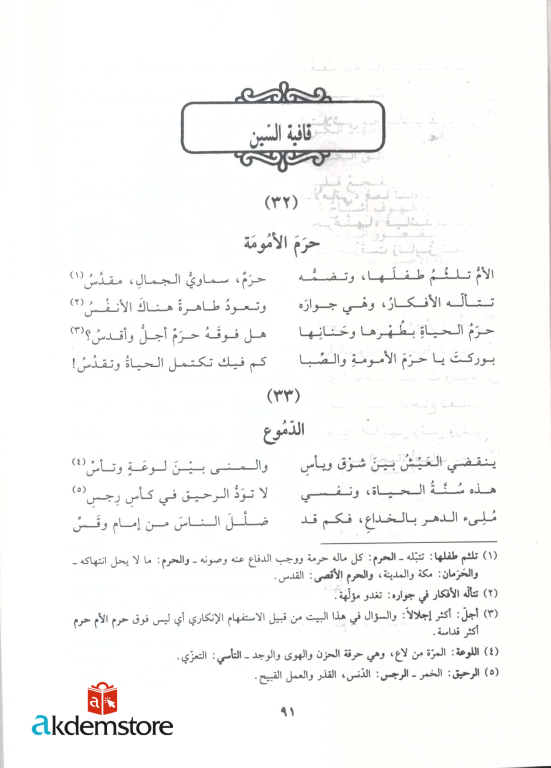 قافية السّين
(٣٢)
حرَمَ الأمُومَة
الأمُّ تـلـثُـمُ طـفـلَـهـا، وتـضـمُّـه حـرَمٌ، سـماويُّ الـجـمالِ، مـقـدَّسُ(١)
تـتـألّـه الأفـكـارُ، وهْي جـوارَه وتـعـودُ طـاهـرةً هـنـاكَ الأنـفُـسُ(٢)
حرَمُ الـحـيـاةِ بـطُـهـرهـا وحَـنـانِـهـا هـل فـوقَـهُ حـرَمٌ أجـلُّ وأقـدسُ؟(٣)
بـوركـتَ يـا حـرَمَ الأمـومـةِ والـصِّـبـا كـم فـيـك تـكـتـمـل الـحـيـاةُ وتـقـدُسُ!
(٣٣)
الدّمُوع
يـنـقـضـي الـعَـيْـشُ بـيـنَ شـوْقٍ ويـأسِ والـمـنـى بـيْـنَ لـوعَـةٍ وتـأسِّ(٤)
هـذه سُـنّـةُ الـحـيـاة، ونـفـسـي لا تـودّ الـرحـيـق فـي كـأسِ رِجـسِ(٥)
مُـلِـىء الـدهـر بـالـخـداعِ، فـكـم قـد ضـلّـلَ الـنـاسَ مـن إمـام وقَـسِّ
(١) تلثم طفلها: تتبّله ـ الحرم: كل ماله حرمة ووجب الدفاع عنه وصونه ـ والحرم: ما لا يحل انتهاكه ـ
والحَرَمان: مكة والمدينة، والحرم الأقصى: القدس.
(٢) تتألّه الأفكار في جواره: تغدو مؤلّهة.
(٣) أجلّ: أكثر إجلالاً: والسؤال في هذا البيت من قبيل الاستفهام الإنكاري أي ليس فوق حرم الأم حرم
أكثر قداسة.
(٤) اللوعة: المرّة من لاع، وهي حرقة الحزن والهوى والوجد ـ التأسي: التعزّي.
(٥) الرحيق: الخمر ـ الرجس: الدّنس، القذر والعمل القبيح.
akdemstore
٩١